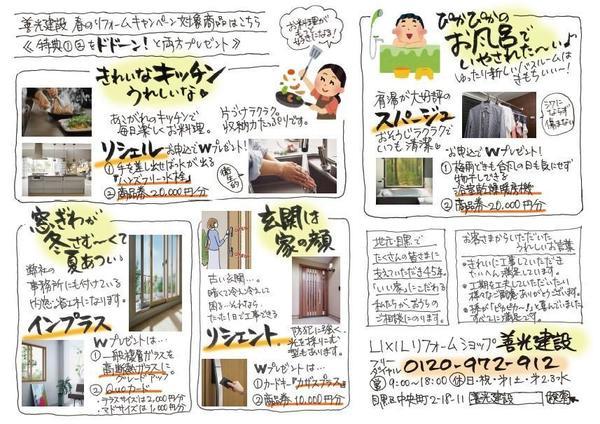 善光建設 春のリフォームキャンペーン対象商品はこちら
《特典①②をドドーン!と両方プレゼント》
お料理が
楽しくなる!
きれいなキッチン
うれしいな
あこがれのキッチンで
毎日楽しくお料理。
片づけラクラク。
収納力たっぷりです。
リシェル
お申込でWプレゼント!
①手を差し出せば水が出る
『ハンズフリー水栓』
②商品券20,000円分
ぴかぴかの
お風呂で
いやされた〜い♪
ゆったり新しいバスルームは
きもちいいー!
肩湯が大好評の
スパージュ
おそうじラクラクで
いつも清潔
シワに
ならず
傷まない
お申込でWプレゼント!
①梅雨どきも台風の日も気にせず
物干しできる
浴室乾燥暖房機
②商品券20,000円分
窓ぎわが
冬さむ〜くて
夏あつい
弊社の
事務所にも付けている
内窓・省エネになります。
インプラス
Wプレゼントは…
①一般複層ガラスを
高断熱ガラスに。
グレードアップ
②QUOカード
・テラスサイズは2,000円分
・マドサイズは1,000円分
玄関は
家の顔
古い玄関…。
暗くて冷え冷えして
困る…そんなお宅
たった1日で工事できる
リシェント
防犯に強く、
光を採りこむ
型もあります。
Wプレゼントは…
①カードキー『カザスプラス』
②商品券10,000円分
地元・目黒で
たくさんの皆さまに
支えていただき45年。
「いい家」にこだわる
私たちが、おうちの
ご相談にのります。
お客さまからいただいた
うれしいお言葉
・きれいに工事していただき
たいへん満足しています。
・工期を工夫していただいたり
様々なご配慮ありがとうございます。
・孫が「ピッカピカ〜」と喜んでいました。
すべてに満足です。
LIXILリフォームショップ 善光建設
フリー
ダイヤル 0120-972-912
営 9:00〜18:00 休 日・祝・第1土・第2.3水
目黒区中央町2-18-11 善光建設 検索